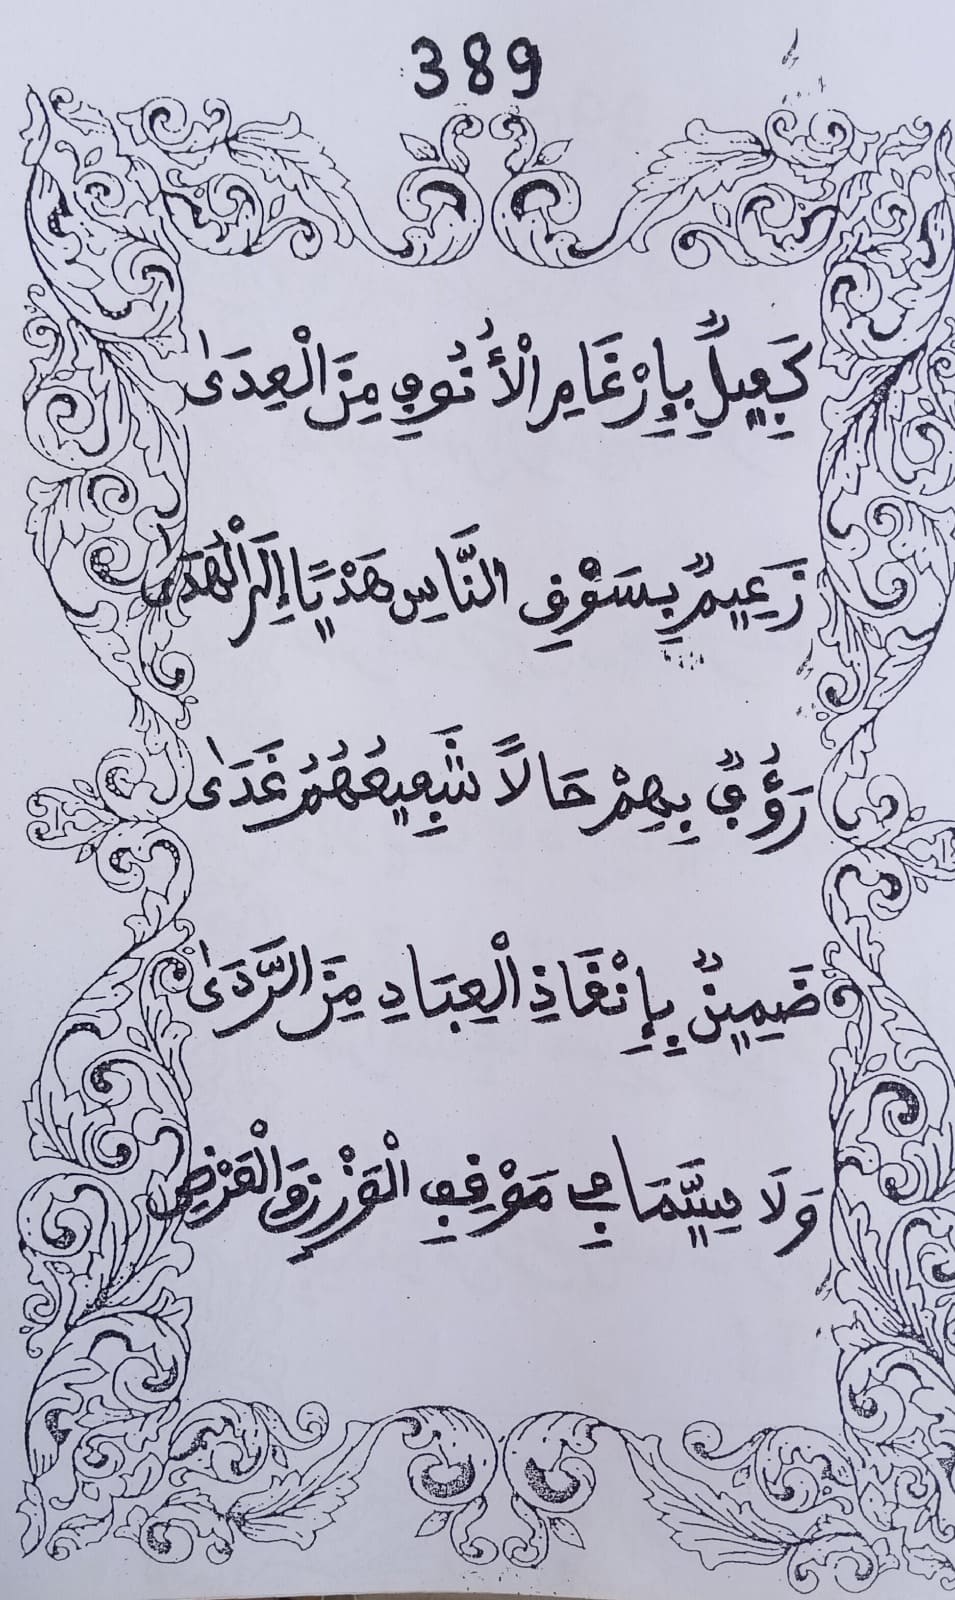 389
كَفِيلٌ بِإِرْغَامِ الْأُنُوفِ مِنَ الْعِدَىٰ
زَعِيمٌ بِسَوْقِ النَّاسِ هَدْيًا إِلَى الْهُدَىٰ
رَؤُفٌ بِهِمْ حَالًا شَفِيعُهُمُ غَدَىٰ
ضَمِينٌ بِإِنْقَاذِ الْعِبَادِ مِنَ الرَّدَىٰ
وَلَا سِيَّمَا فِي مَوْقِفِ الْفَرْزِ وَالْعَرْضِ